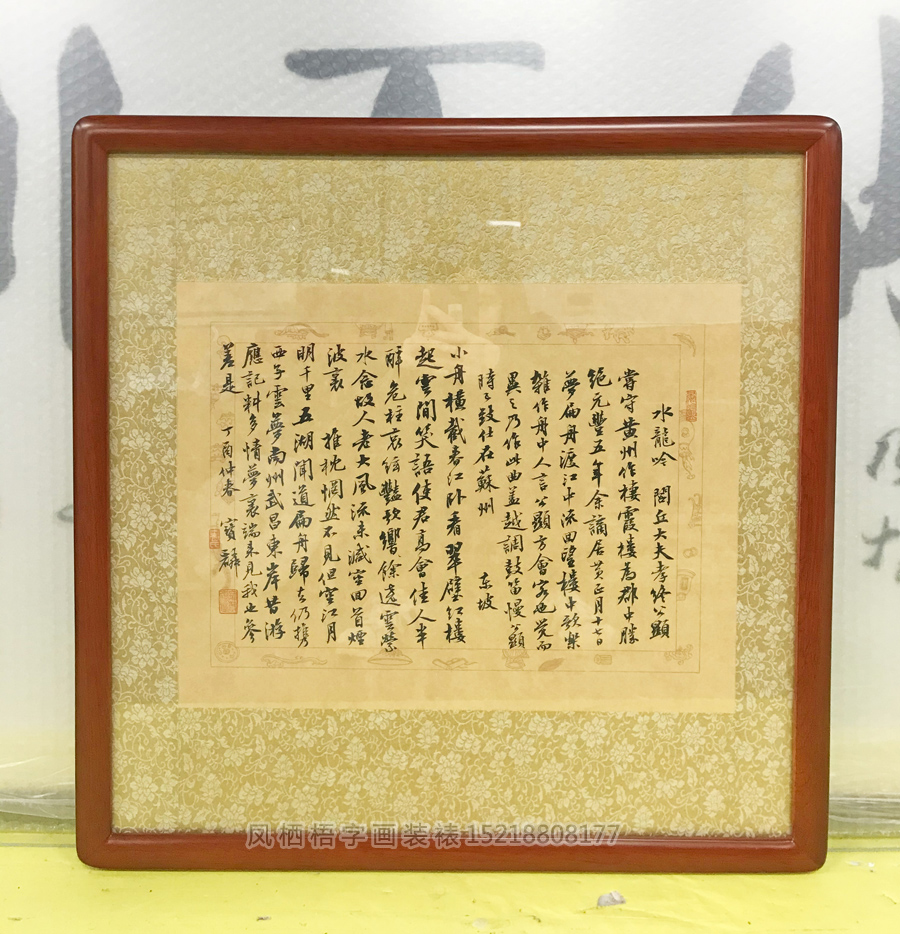 水龍吟 閭丘大夫孝終公顯
嘗守黄州作棲霞樓為郡中勝
絕元豐五年余謫居黄正月十七日
夢扁舟渡江中流回望樓中歌樂
雜作舟中人言公顯方會客也覺而
異之乃作此曲蓋越調鼓笛慢公顯
時已致仕在蘇州 東坡
小舟橫截春江卧看翠壁紅樓
起雲間笑語使君高會佳人半
醉危柱哀絃豔歌響餘遶雲縈
水念故人老大風流未減空回首煙
波裏 推枕惘然不見但空江月
明千里五湖聞道扁舟歸去仍攜
西子雲夢南州武昌東岸昔游
應記料多情夢裏端來見我也參
差是 丁酉仲春 寶麟
凤栖梧字画装裱15218808177